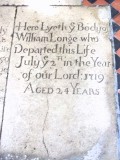 Here Lyeth ẙ Body of
William Longe who
Departed this Life
July ẙ 2ⁿ in the Year
of our Lord: 1719
AGED 24 YEARS